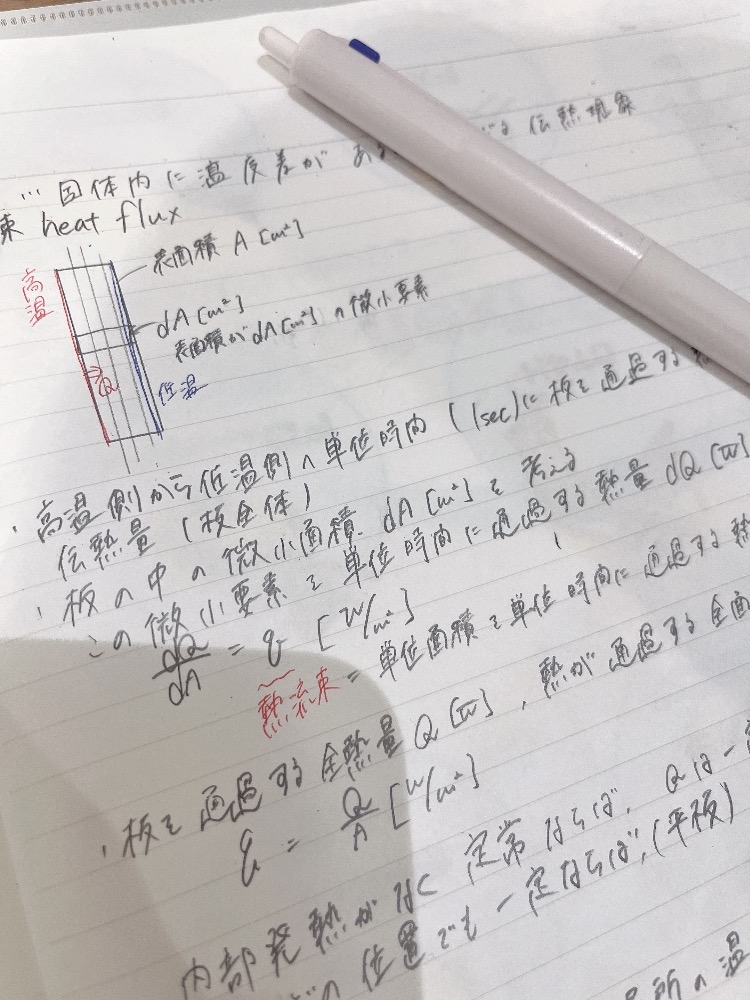 … 固体内に温度差がある 伝熱現象
束 heat flux
表面積 A [m²]
高温
dA [m²]
表面積が dA [m²] の微小要素
Q
低温
・高温側から低温側へ単位時間 (1sec)に板を通過する
伝熱量 (板全体)
・板の中の微小面積 dA [m²] を考える
この微小要素を単位時間に通過する熱量 dQ [W]
dQ/dA = q [W/m²]
熱流束 = 単位面積を単位時間に通過する熱
・板を通過する全熱量 Q [W], 熱が通過する全面
q = Q/A [W/m²]
内部発熱がなく定常ならば, Qは一定
の位置でも一定ならば, (平板)
所の温